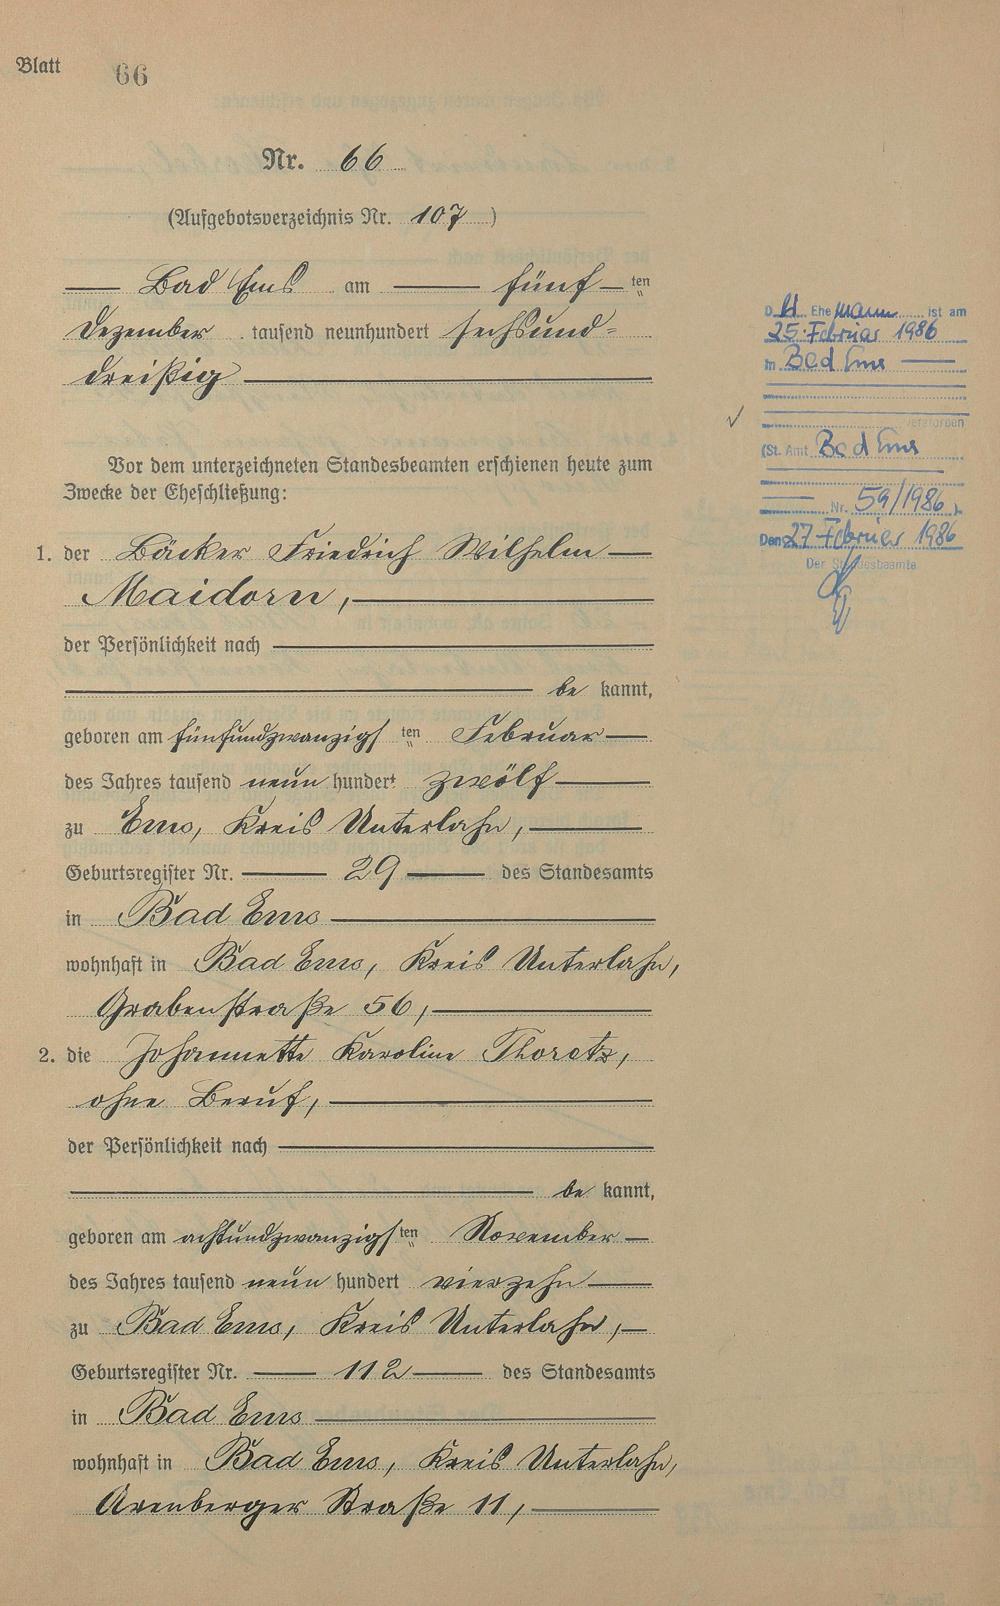 Blatt 66
Nr. 66
(Aufgebotsverzeichnis Nr. 107)
Bad Ems am fünf ten
Dezember tausend neunhundert sechsund=
dreißig
Vor dem unterzeichneten Standesbeamten erschienen heute zum
Zwecke der Eheschließung:
1. der Bäcker Friedrich Wilhelm
Maidorn,
der Persönlichkeit nach
be kannt,
geboren am fünfundzwanzigs ten Februar
des Jahres tausend neun hundert zwölf
zu Ems, Kreis Unterlahn,
Geburtsregister Nr. 29 des Standesamts
in Bad Ems
wohnhaft in Bad Ems, Kreis Unterlahn,
Grabenstraße 56,
2. die Johannette Karoline Thoretz,
ohne Beruf,
der Persönlichkeit nach
be kannt,
geboren am achtundzwanzigs ten November
des Jahres tausend neun hundert vierzehn
zu Bad Ems, Kreis Unterlahn,
Geburtsregister Nr. 112 des Standesamts
in Bad Ems
wohnhaft in Bad Ems, Kreis Unterlahn,
Arenberger Straße 11,
D er Ehe mann ist am
25. Februar 1986
in Bad Ems
verstorben
(St. Amt Bad Ems
Nr. 59/1986 ).
Den 27. Februar 1986
Der Standesbeamte